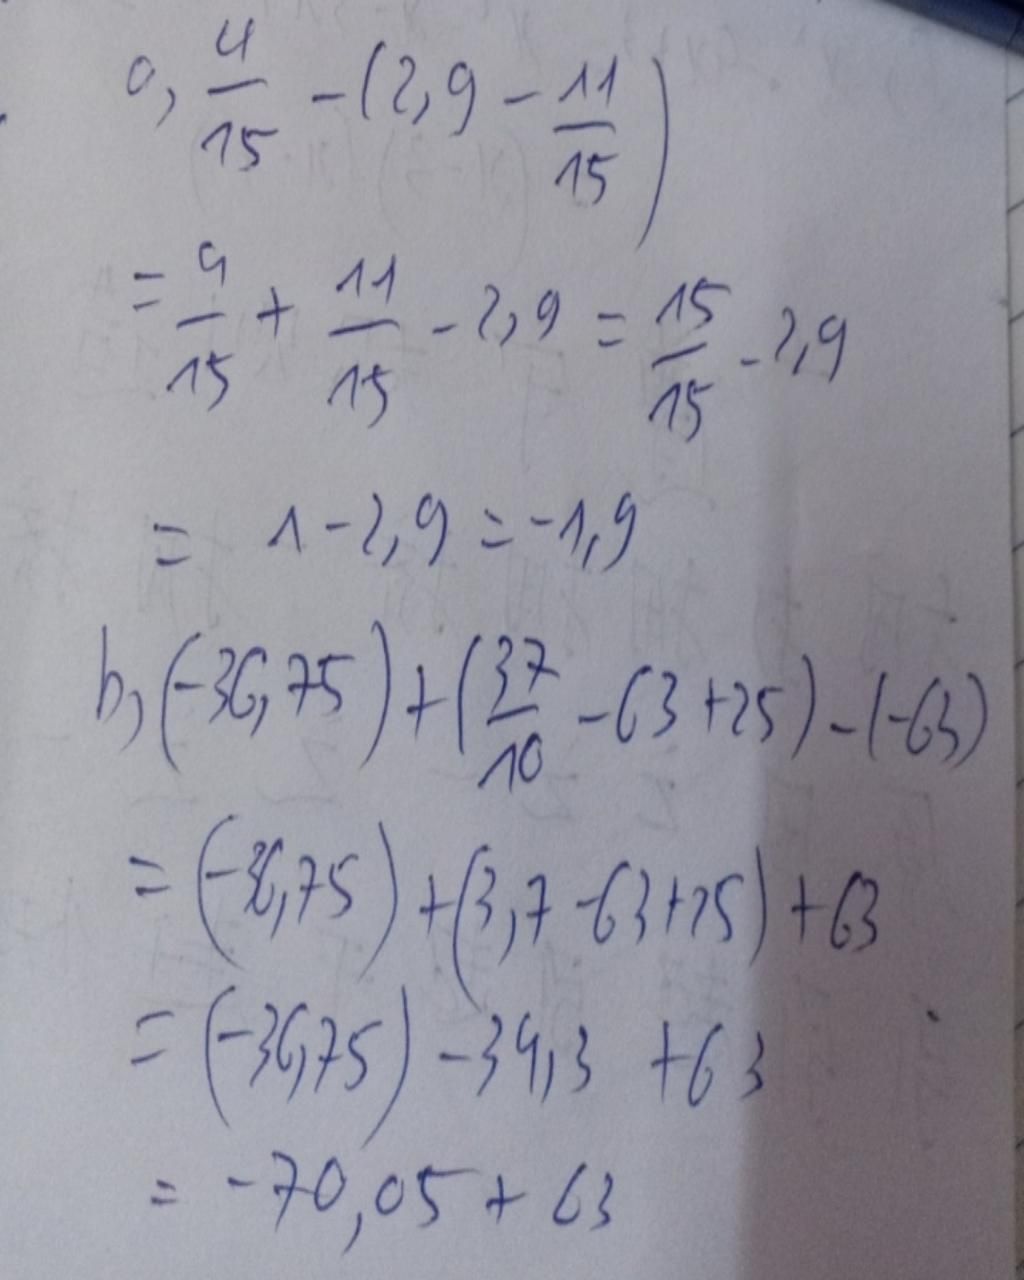 a, 4/15 - (2,9 - 11/15)
= 4/15 + 11/15 - 2,9 = 15/15 - 2,9
= 1 - 2,9 = -1,9
b, (-36,75) + (37/10 - 63 + 25) - (-63)
= (-36,75) + (3,7 - 63 + 25) + 63
= (-36,75) - 34,3 + 63
= -70,05 + 63